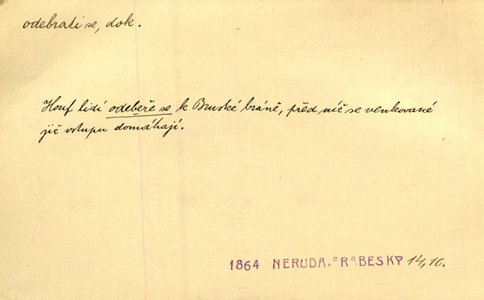 odebrati se, dok.
Houf lidí odebéře se k Bruské bráně, před níž se venkované
již vstupu domáhají.
1864 NERUDA, ARABESKY 14, 10.